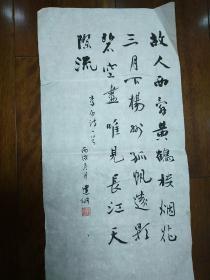 故人西辞黄鹤楼烟花
三月下楊州孤帆遠影
碧空盡唯見長江天
際流
李白诗一首